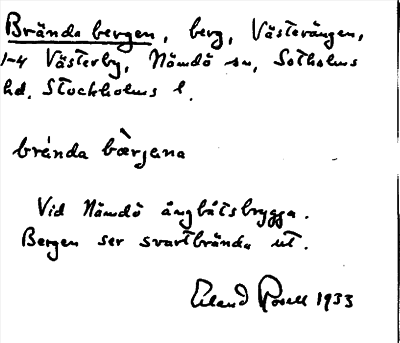 Brända bergen, berg, Västerängen,
1-4 Västerby, Nämdö sn, Sotholms
hd. Stockholms l.
brén̄da bæ̀rjena
Vid Nämdö ångbåtsbrygga.
Bergen ser svartbrända ut.
Erland Rosell 1933